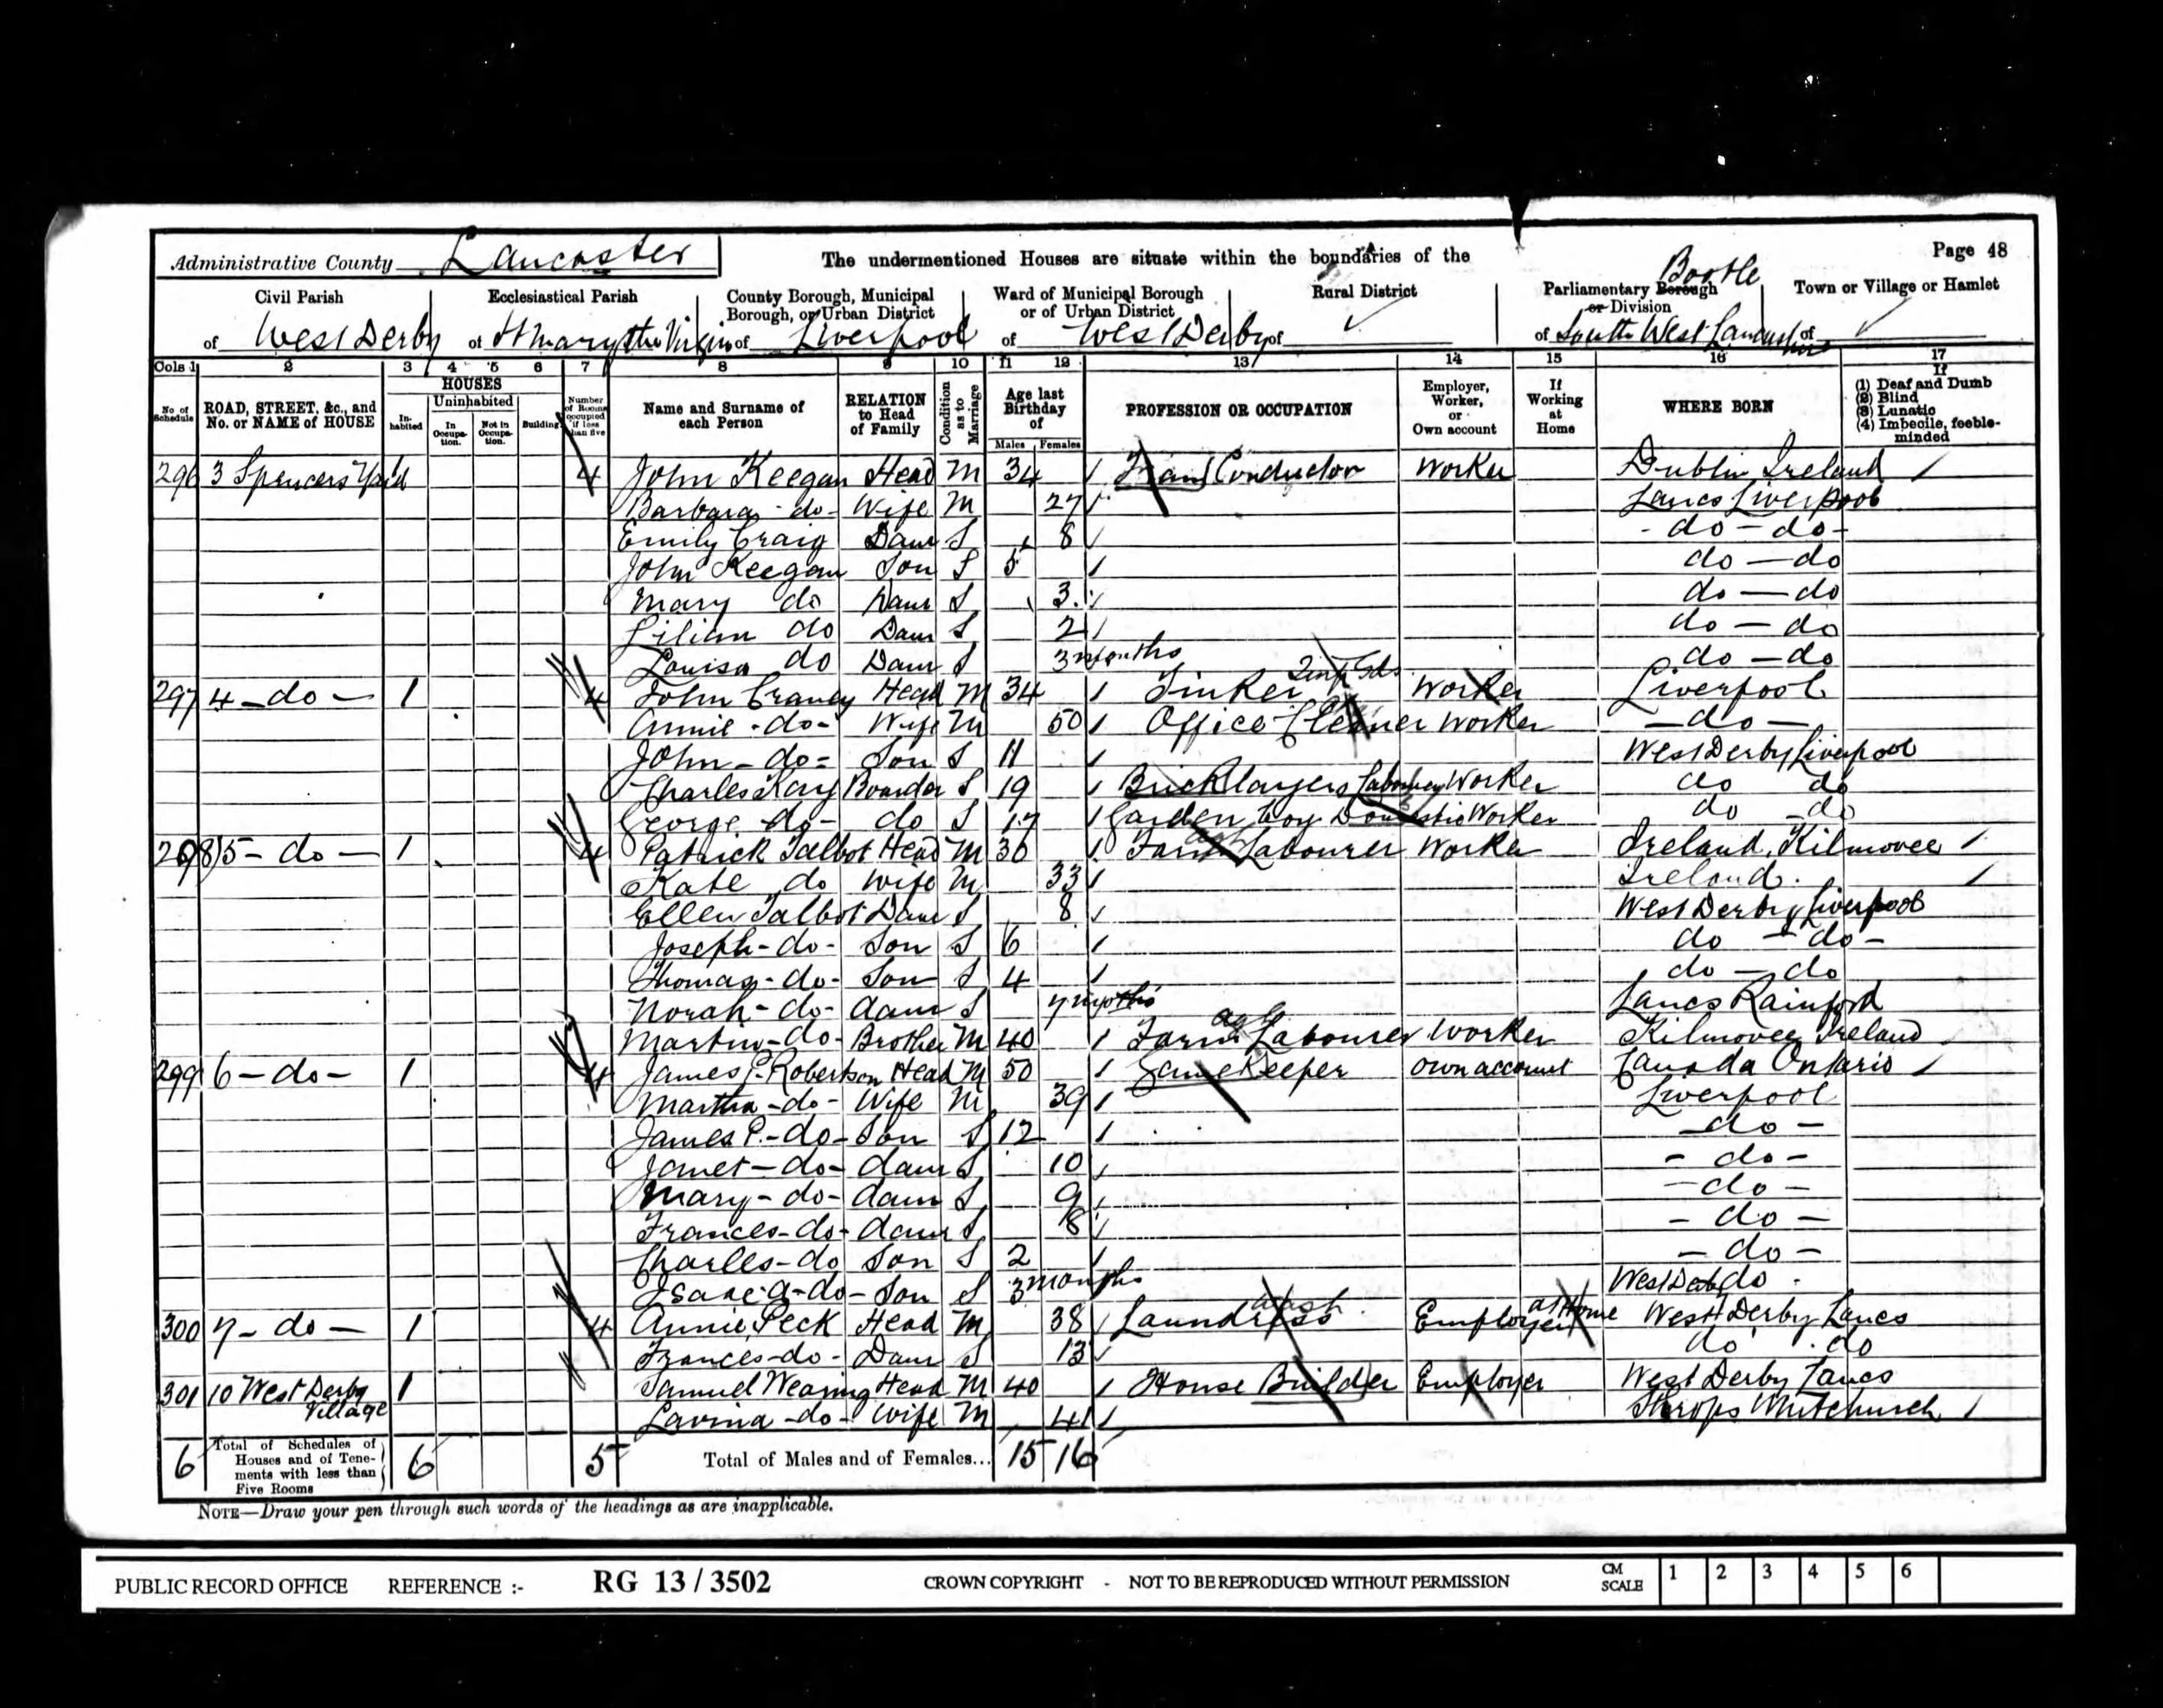 Administrative County Lancaster The undermentioned Houses are situate within the boundaries of the Page 48
Civil Parish Ecclesiastical Parish County Borough, Municipal Borough, or Urban District Ward of Municipal Borough or of Urban District Rural District Parliamentary Borough or Division Bootle Town or Village or Hamlet
of West Derby of St Mary the Virgin of Liverpool of West Derby of of South West Lancashire of
Cols 1 2 3 4 5 6 7 8 9 10 11 12 13 14 15 16 17
No of Schedule ROAD, STREET, &c., and No. or NAME of HOUSE HOUSES Inhabited Uninhabited In Occupation. Not in Occupation. Building Number of Rooms occupied if less than five Name and Surname of each Person RELATION to Head of Family Condition as to Marriage Age last Birthday of Males Females PROFESSION OR OCCUPATION Employer, Worker, or Own account If Working at Home WHERE BORN If (1) Deaf and Dumb (2) Blind (3) Lunatic (4) Imbecile, feeble-minded
296 3 Spencers Yard 4 John Keegan Head M 34 Tram Conductor Worker Dublin Ireland
Barbara - do - Wife M 27 Lancs Liverpool
Emily Craig Daur S 8 - do - do -
John Keegan Son S 5 do - do
Mary do Daur S 3 do - do
Lilian do Daur S 2 do - do
Louisa do Daur S 3 months do - do
297 4 - do - 1 4 John Craney Head M 34 Tinker Worker Liverpool
Annie - do - Wife M 50 Office Cleaner Worker - do -
John - do - Son S 11 West Derby Liverpool
Charles Kay Boarder S 19 Bricklayers Labourer Worker do do
George - do - do S 17 Garden boy Domestic Worker do - do
298 5 - do - 1 4 Patrick Talbot Head M 36 Farm Labourer Worker Ireland, Kilmovee
Kate do Wife M 33 Ireland.
Ellen Talbot Daur S 8 West Derby Liverpool
Joseph - do - Son S 6 do - do -
Thomas - do - Son S 4 do - do
Norah - do - daur S 7 months Lancs Rainford
Martin - do - Brother M 40 Farm Labourer agl Worker Kilmovee Ireland
299 6 - do - 1 4 James P. Robertson Head M 50 Game Keeper own account Canada Ontario
Martha - do - Wife M 39 Liverpool
James P. - do - Son S 12 - do -
Janet - do - daur S 10 - do -
Mary - do - daur S 9 - do -
Frances - do - daur S 8 - do -
Charles - do Son S 2 - do -
Isaac A - do - Son S 3 months West Derby do
300 7 - do - 1 4 Annie Peck Head M 38 Laundress wash Employer at Home West Derby Lancs
Frances - do - Daur S 13 do do
301 10 West Derby Village 1 Samuel Wearing Head M 40 House Builder Employer West Derby Lancs
Lavina - do - Wife M 41 Shrops Whitchurch
6 Total of Schedules of Houses and of Tenements with less than Five Rooms 6 5 Total of Males and of Females... 15 16
NOTE—Draw your pen through such words of the headings as are inapplicable.
PUBLIC RECORD OFFICE REFERENCE :- RG 13 / 3502 CROWN COPYRIGHT - NOT TO BE REPRODUCED WITHOUT PERMISSION CM SCALE 1 2 3 4 5 6